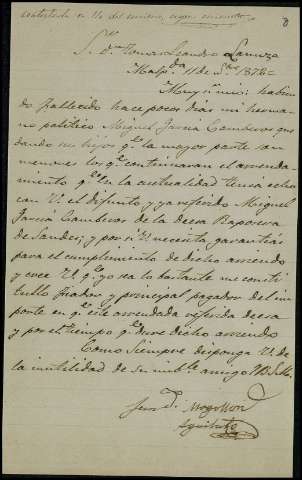 Contestada en 14 del mismo, segun minuta
8
Sr. Dn. Tomas Leandro
Malpda. 11 de Sbre. 1878=
Muy Sr. mio: habien
do fallecido hace pocos dias mi herma
no politico Miguel Garcia Camberos que
dando sus hijos qe. la mayor parte son
menores los qe. continuaran el arrenda
miento qe. en la actualidad tenia echo
con V. el difunto y ya referido Miguel
Garcia Camberos de la deesa
de Sande; y por si V. necesita, garantias
para el cumplimiento de dicho arriendo
y cree V. qe. yo sea lo bastante me consti
tullo fiador y principal pagador del im
porte en qe. este arrendada referida deesa
y por el tiempo qe. dure dicho arriendo
Como siempre disponga V. de
la inutilidad de su amigo
Mogollon